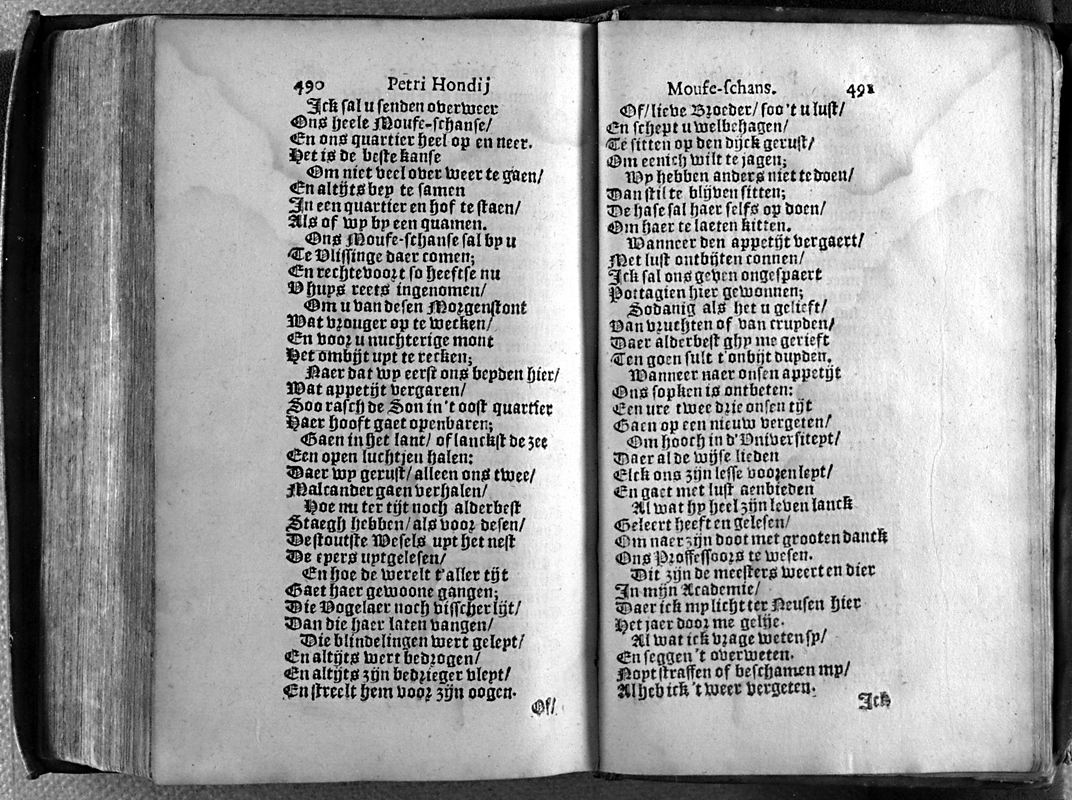 490 Petri Hondij
Ick sal u senden overweer
Ons heele Moufe-schanse/
En ons quartier heel op en neer.
Het is de beste kanse
Om niet veel over weer te gaen/
En altijts bey te samen
In een quartier en hof te staen/
Als of wy by een quamen.
Ons Moufe-schanse sal by u
Te Vlissinge daer comen;
En rechtevoort so heeftse nu
V huys reets ingenomen/
Om u van desen Morgenstont
Wat vrouger op te wecken/
En voor u nuchterige mont
Het ombijt uyt te recken;
Naer dat wy eerst ons beyden hier/
Wat appetijt vergaren/
Soo rasch de Son in't oost quartier
Haer hooft gaet openbaren;
Gaen in het lant/ of lanckst de zee
Een open luchtjen halen:
Daer wy gerust/ alleen ons twee/
Malcander gaen verhalen/
Hoe nu ter tijt noch alderbest
Staegh hebben/ als voor desen/
De stoutste Wesels uyt het nest
De eyers uytgelesen/
En hoe de werelt t'aller tijt
Gaet haer gewoone gangen;
Die Vogelaer noch visscher lijt/
Dan die haer laten vangen/
Die blindelingen wert geleyt/
En altijts wert bedrogen/
En altijts zijn bedrieger vleyt/
En streelt hem voor zijn oogen.
Of/
Moufe-schans. 491
Of/ lieve Broeder/ soo 't u lust/
En schept u welbehagen/
Te sitten op den dijck gerust/
Om eenich wilt te jagen;
Wy hebben anders niet te doen/
Dan stil te blijven sitten;
De hase sal haer selfs op doen/
Om haer te laeten hitten.
Wanneer den appetijt vergaert/
Met lust ontbijten connen/
Ick sal ons geven ongespaert
Pottagien hier gewonnen;
Sodanig als het u gelieft/
Van vruchten of van cruyden/
Daer alderbest ghy me gerieft
Ten goen sult t'onbijt duyden.
Wanneer naer onsen appetijt
Ons sopken is ontbeten:
Een ure twee drie onsen tijt
Gaen op een nieuw vergeten/
Om hooch in d'Universiteyt/
Daer al de wijse lieden
Elck ons zijn lesse voorenleyt/
En gaet met lust aenbieden
Al wat hy heel zijn leven lanck
Geleert heeft en gelesen/
Om naer zijn doot met grooten danck
Ons Proffessoors te wesen.
Dit zijn de meesters weert en dier
In mijn Academie/
Daer ick my licht ter Neusen hier
Het jaer door me gelije.
Al wat ick vrage weten sy/
En seggen 't overweten.
Noyt straffen of beschamen my/
Al heb ick 't weer vergeten.
Ick